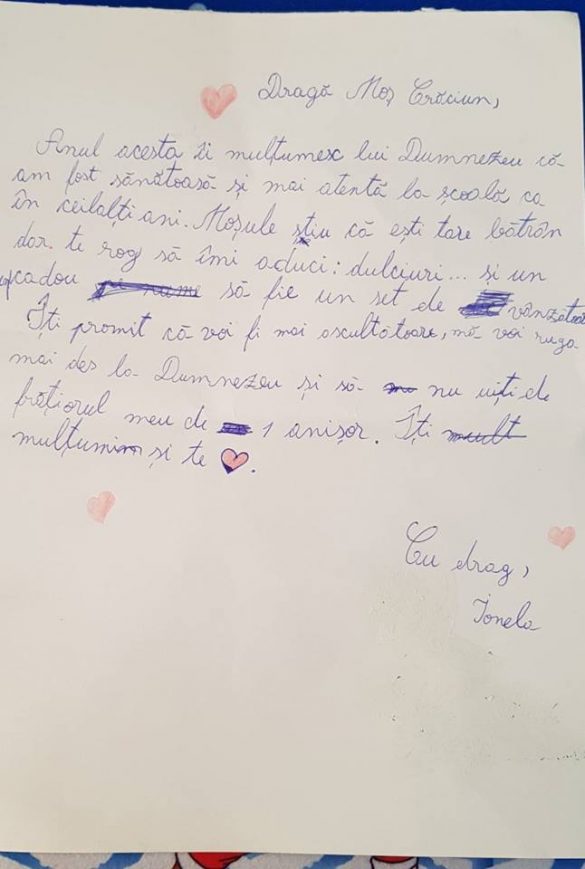 Dragă Moș Crăciun,
Anul acesta îi mulțumesc lui Dumnezeu că
am fost sănătoasă și mai atentă la școală ca
în ceilalți ani. Moșule știu că ești tare bătrân
dar. te rog să îmi aduci: dulciuri... si un
cadou să fie un set de vânzătoar
Îți promit că voi fi mai ascultătoare, mă voi ruga
mai des la Dumnezeu și să nu uiți de
frățiorul meu de 1 anișor. Îți
mulțumim și te ♥.
Cu drag,
Ionela